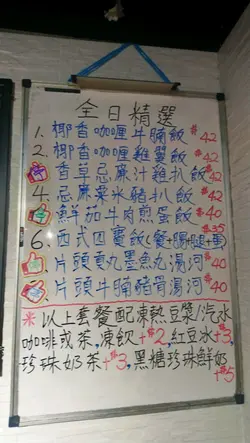 全日精選
1. 椰香咖喱牛腩飯 $42
2. 椰香咖喱雞翼飯 $42
香草忌廉汁雞扒飯 $42
4. 忌廉粟米豬扒飯 $42
鮮茄牛肉煎蛋飯 $40
6. 西式四寶飯(餐+腸+腿+蛋) $35
片頭雙丸墨魚丸湯河 $40
片頭牛腩豬骨湯河 $40
*以上套餐配凍熱豆漿/汽水
咖啡或茶,凍飲+$2,紅豆冰+$3,
珍珠奶茶+$3,黑糖珍珠鮮奶
+$5